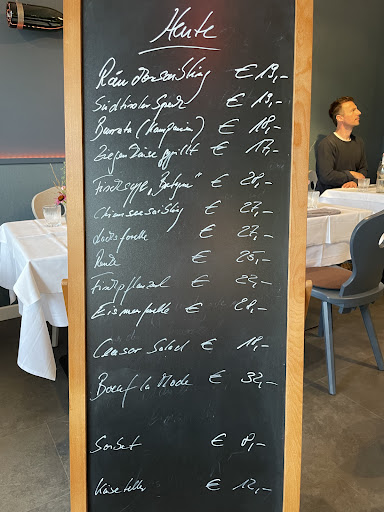 Heute
Räucherseibling € 19,-
Südtiroler Speck € 19,-
Burrata (Kampanien) € 18,-
Ziegenkäse gegrillt € 17,-
Fischsuppe „ " € 28,-
Chiemseesaibling € 27,-
Lachsforelle € 27,-
€ 25,-
Fischpflanzerl € 22,-
Eismeerforelle € 28,-
Ceasar Salad € 18,-
Boeuf la Mode € 32,-
Sorbet € 8,-
Käseteller € 12,-